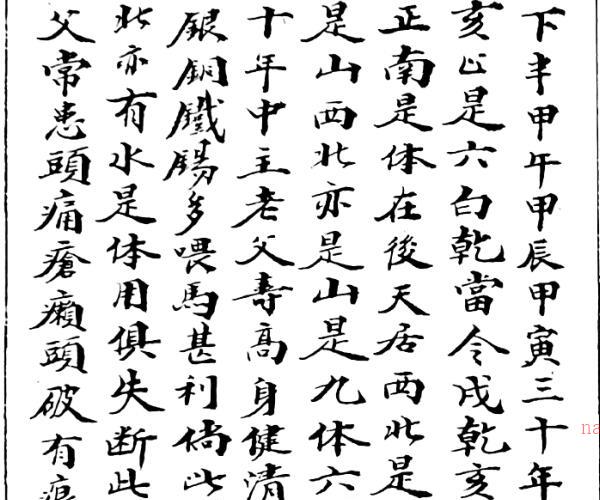 下半甲午甲辰甲寅三十年
亥山是六白乾當令戌乾亥
正南是体在後天居西北是
是山西北亦是山是九体六
十年中主老父壽高身健清
銀銅鐵錫多喂馬甚利倘此
北亦有水是体用俱失断此
父常患頭痛瘡癩頭破有
na